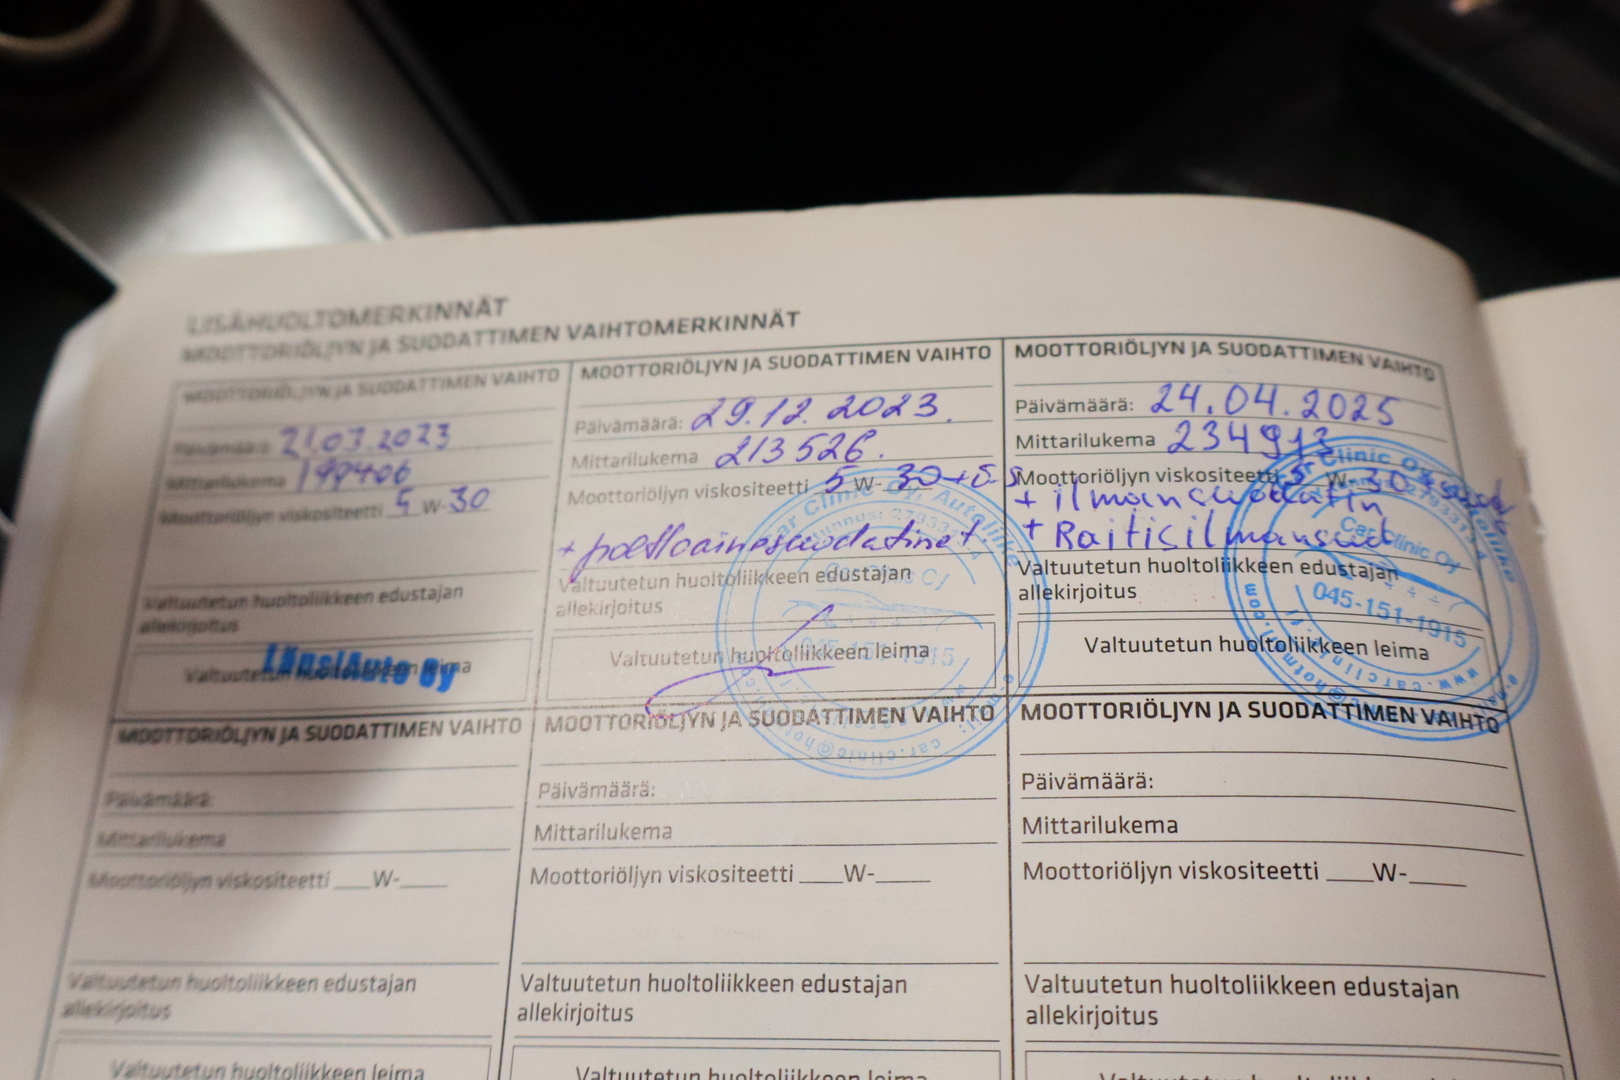 LISÄHUOLTOMERKINNÄT
MOOTTORIÖLJYN JA SUODATTIMEN VAIHTOMERKINNÄT
MOOTTORIÖLJYN JA SUODATTIMEN VAIHTO
Päivämäärä: 21.03.2023
Mittarilukema 199406
Moottoriöljyn viskositeetti 5 W-30
Valtuutetun huoltoliikkeen edustajan
allekirjoitus
Valtuutetun huoltoliikkeen leima
LänsiAuto Oy
MOOTTORIÖLJYN JA SUODATTIMEN VAIHTO
Päivämäärä: 29.12.2023.
Mittarilukema 213526.
Moottoriöljyn viskositeetti 5 W-30+ö.s
+ polttoainesuodatinet.
Valtuutetun huoltoliikkeen edustajan
allekirjoitus
Valtuutetun huoltoliikkeen leima
Car Clinic Oy, Autoliike
Car Clinic Oy
045-151-1915
MOOTTORIÖLJYN JA SUODATTIMEN VAIHTO
Päivämäärä: 24.04.2025
Mittarilukema 234913
Moottoriöljyn viskositeetti 5 W-30
+ ilmansuodatin
+ Raitisilmansuod
Valtuutetun huoltoliikkeen edustajan
allekirjoitus
Valtuutetun huoltoliikkeen leima
Car Clinic Oy
Car Clinic Oy
045-151-1915
MOOTTORIÖLJYN JA SUODATTIMEN VAIHTO
Päivämäärä:
Mittarilukema
Moottoriöljyn viskositeetti ___W-____
Valtuutetun huoltoliikkeen edustajan
allekirjoitus
Valtuutetun huoltoliikkeen leima
MOOTTORIÖLJYN JA SUODATTIMEN VAIHTO
Päivämäärä:
Mittarilukema
Moottoriöljyn viskositeetti ___W-____
Valtuutetun huoltoliikkeen edustajan
allekirjoitus
Valtuutetun huoltoliikkeen leima
MOOTTORIÖLJYN JA SUODATTIMEN VAIHTO
Päivämäärä:
Mittarilukema
Moottoriöljyn viskositeetti ___W-____
Valtuutetun huoltoliikkeen edustajan
allekirjoitus
Valtuutetun huoltoliikkeen leima